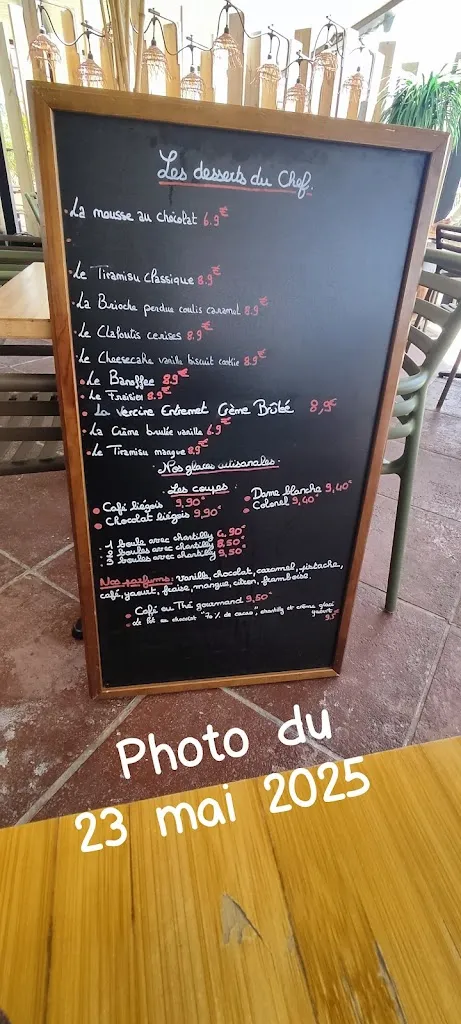 Les desserts du Chef.
• La mousse au chocolat 6.9€
• Le Tiramisu classique 8.9€
• La Brioche perdue coulis caramel 8.9€
• Le Clafoutis cerises 8.9€
• Le Cheesecake vanille biscuit cookie 8.9€
• Le Banoffee 8.9€
• Le Fraisier 8.9€
• La Verrine Entremet Crème Brûlé 8,9€
• La Crème brulée vanille 6.9€
• Le Tiramisu mangue 8,9€
• Nos glaces artisanales
Les coupes
• Café liégois 9,90€ • Dame blanche 9,40€
• Chocolat liégois 9,90€ • Colonel 9,40€
1 boule avec chantilly 4,90€
2 boules avec chantilly 8,50€
3 boules avec chantilly 9,50€
Nos parfums: vanille, chocolat, caramel, pistache,
café, yaourt, fraise, mangue, citron, framboise.
• Café ou Thé gourmand 9,50€
• chocolat "70% de cacao", chantilly et crème glacé
yaourt
Photo du
23 mai 2025